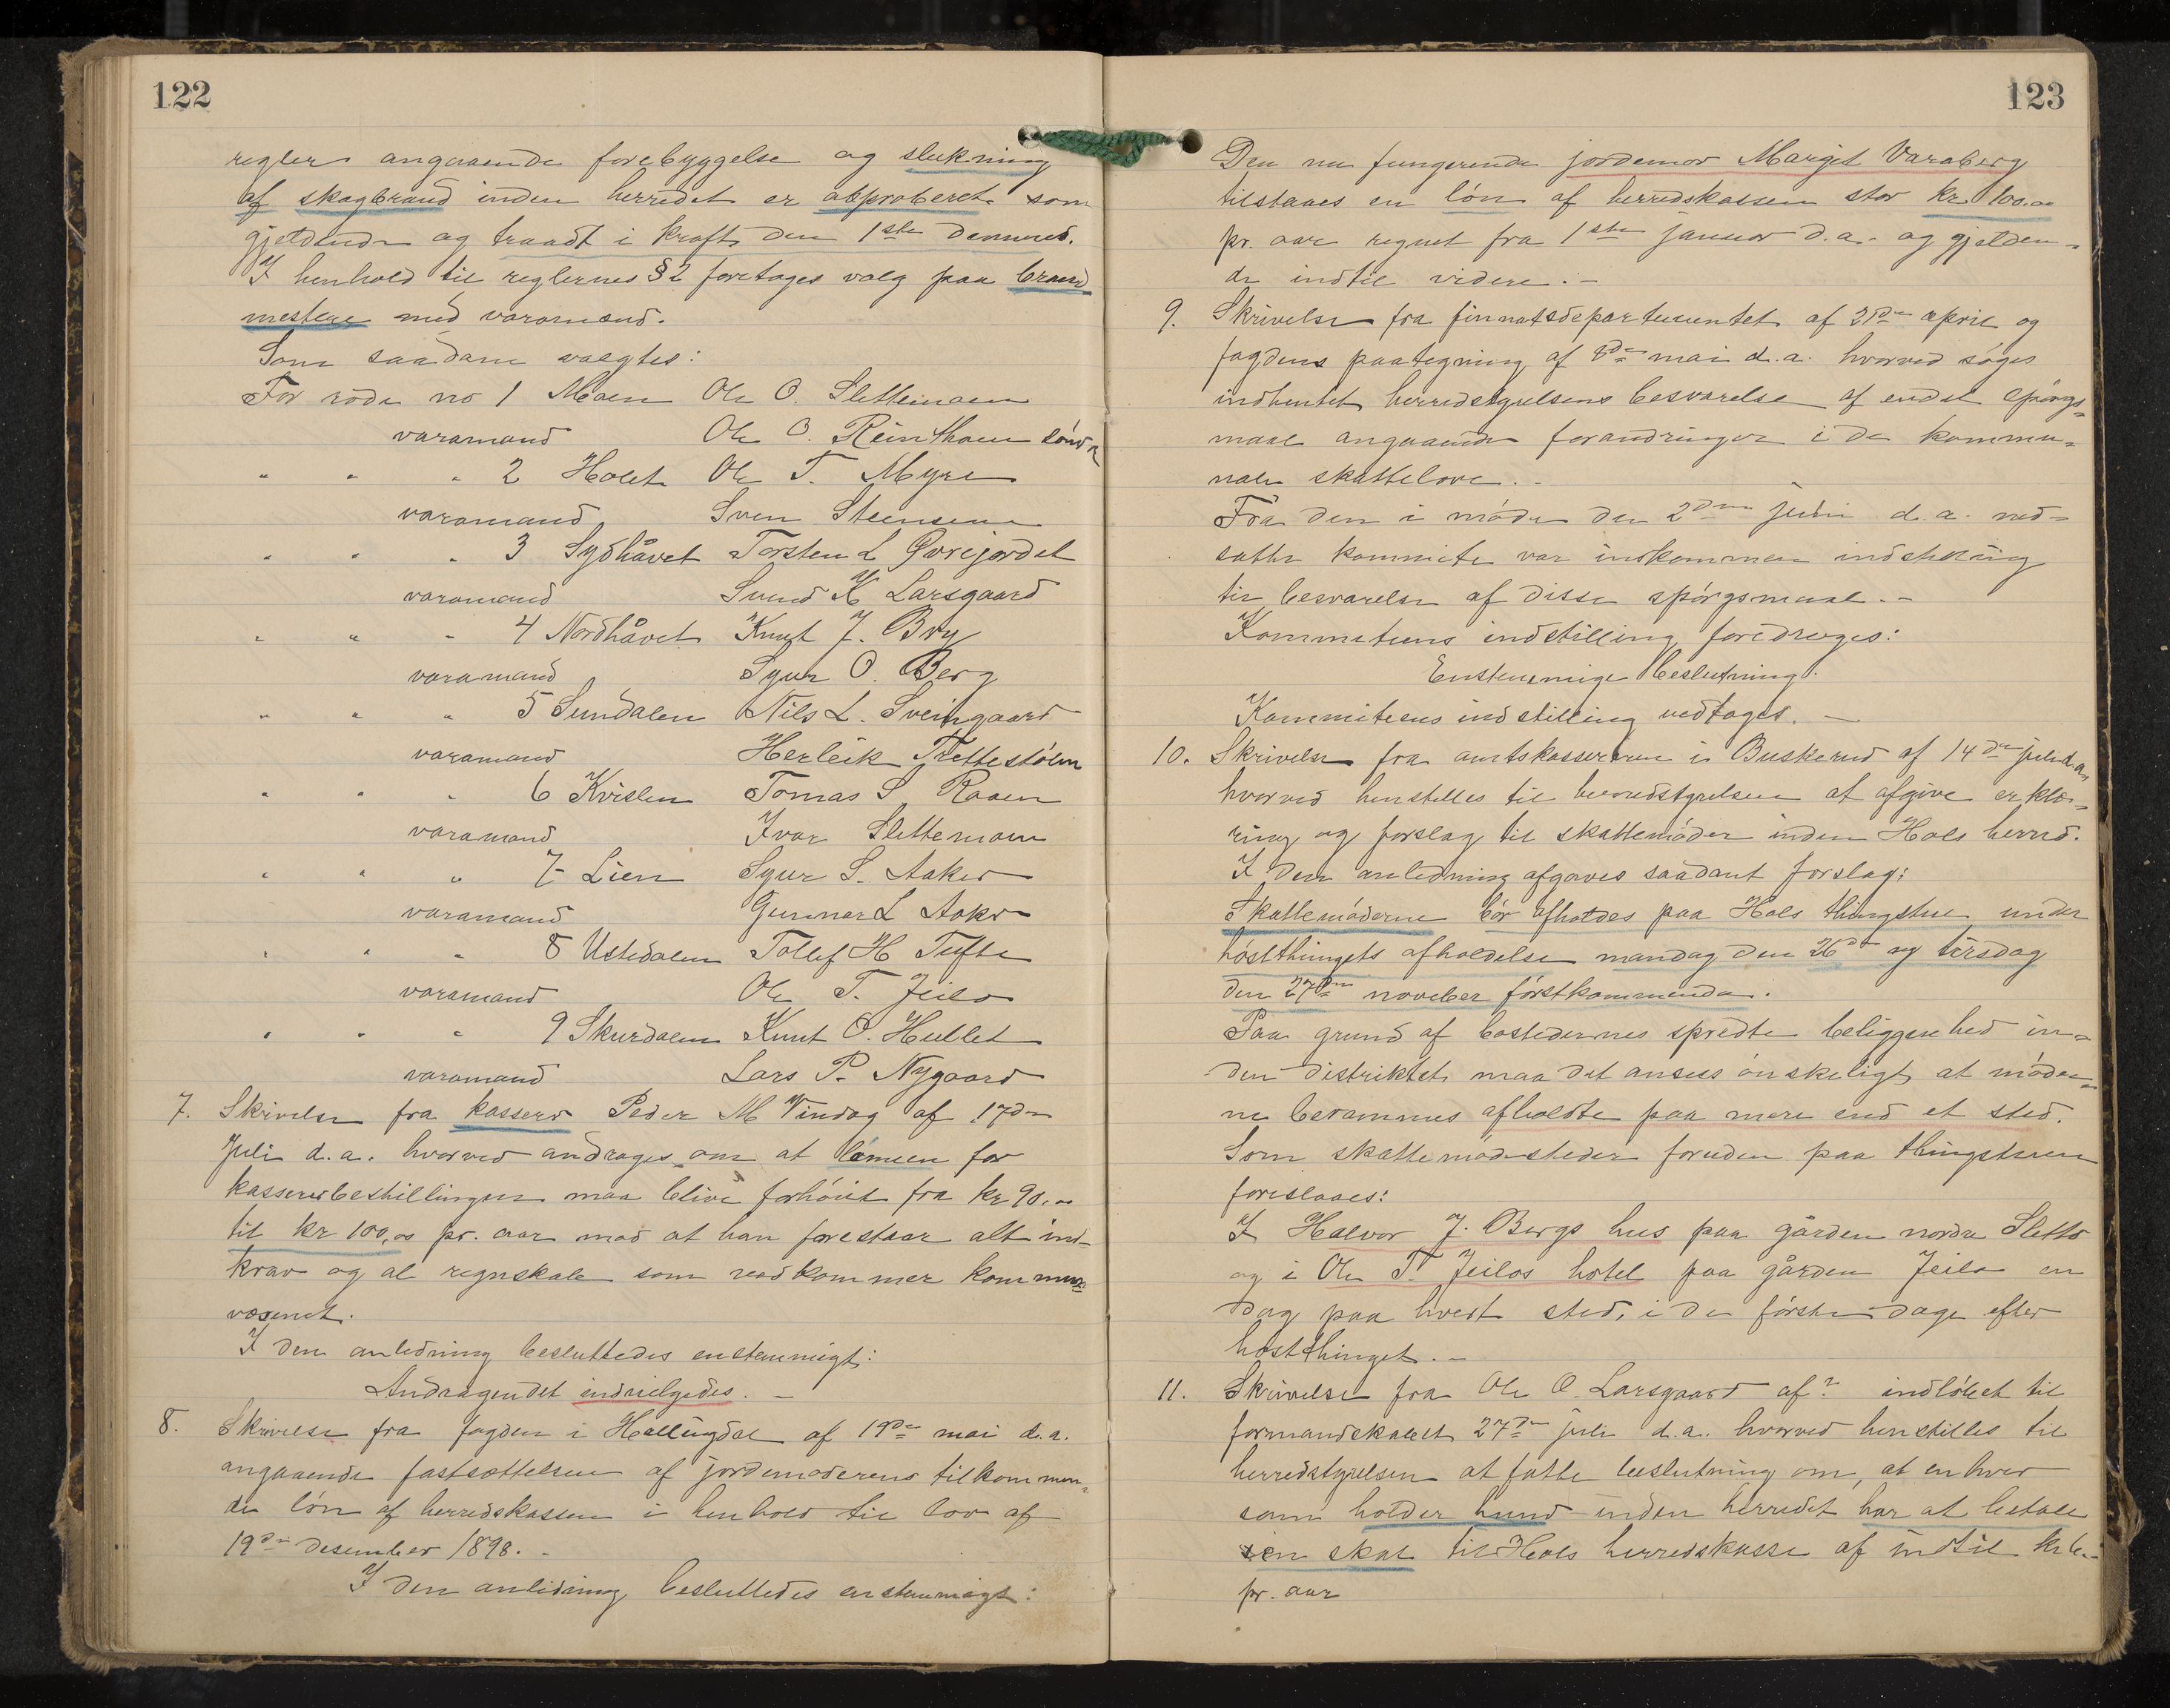 122
regler angaaende forebyggelse og slukning
af skogbrand inden herredet er abproberet som
gjeldende og traadt i kraft den 1ste dennes.
I henhold til reglernes § 2 foretages valg paa brand
mestere med varamænd.
Som saadane valgtes:
For rode no 1 Moen Ole O. Slettemoen
varamand Ole O. Reinthon søndre
" " " 2 Holet Ole T. Myre
varamand Sven Steensen
" " " 3 Sydhåvet Torsten L Øvrejordet
varamand Svend K Larsgaard
" " " 4 Nordhåvet Knut J. Bry
varamand Syver O. Berg
" " " 5 Sundalen Nils L. Sveingaard
varamand Herleik Trettestølen
" " " 6 Kvislen Tomas S Raaen
varamand Ivar Slettemoen
" " " 7 Lien Syver S. Aaker
varamand Gunnar L Aaker
" " " 8 Ustedalen Tollef H Tufte
varamand Ole T. Jeilo
" " " 9 Skurdalen Knut O. Hullet
varamand Lars P. Nygaard
7. Skrivelse fra kasserer Peder M Vindeg af 17de
Juli d.a. hvorved andrages om at lønnen for
kassererbestillingen maa blive forhøiet fra kr 90.00
til kr 100,00 pr. aar mod at han forestaar alt ind-
krav og al regnskab som vedkommer kommune
væsenet.
I den anledning besluttedes enstemmigt:
Andragendet indvilgedes. -
8. Skrivelse fra fogden i Hallingdal af 19de mai d.a.
angaaende fastsættelsen af jordemoderens tilkommen-
de løn af herredskassen i henhold til lov af
19de desember 1898. -
I den anledning besluttedes enstemmigt:
123
Den nu fungerende jordemor Margit Varaberg
tilstaaes en løn af herredskassen stor kr. 100.00
pr. aar regnet fra 1ste januar d.a. og gjelden-
de indtil videre. -
9. Skrivelse fra finnatsdepartementet af 21de april og
fogdens paategning af 8de mai d.a. hvorved søges
indhentet herredstyrelsens besvarelse af endel spørgs-
maal angaaende forandringer i de kommu-
nale skattelove. -
Fra den i møde den 2den juli d.a. ned-
satte kommite var indkommen indstilling
til besvarelse af disse spørgsmaal. -
Kommiteens indstilling foredroges:
Enstemmige beslutning:
Kommiteens indstilling vedtages. -
10. Skrivelse fra amtskassereren i Buskerud af 14de juli d.a
hvorved henstilles til herredstyrelsen at afgive erklæ-
ring og forslag til skattemøder inden Hols herred.
I den anledning afgaves saadant forslag:
Skattemøderne bør afholdes paa Hols thingstue under
høstthingets afholdelse mandag den 26de og tirsdag
den 27de noveber førstkommende.
Paa grund af bostedernes spredte beliggenhed in-
den distriktet maa det ansees ønskeligt at møder-
ne berammes afholdte paa mere end et sted.
Som skattemødesteder foruden paa thingstuen
foreslaaes:
I Halvor J. Bergs hus paa gården nordre Sletto
og i Ole T. Jeilos hotel paa gården Jeilo en
dag paa hvert sted, i de første dage efter
høstthinget. -
11. Skrivelse fra Ole O. Larsgaard af? indløbet til
formandskabet 27de juli d.a. hvorved henstilles til
herredstyrelsen at fatte beslutning om, at enhver
som holder hund inden herredet har at betale
en skat til Hols herredskasse af indtil kr 6.-
pr. aar